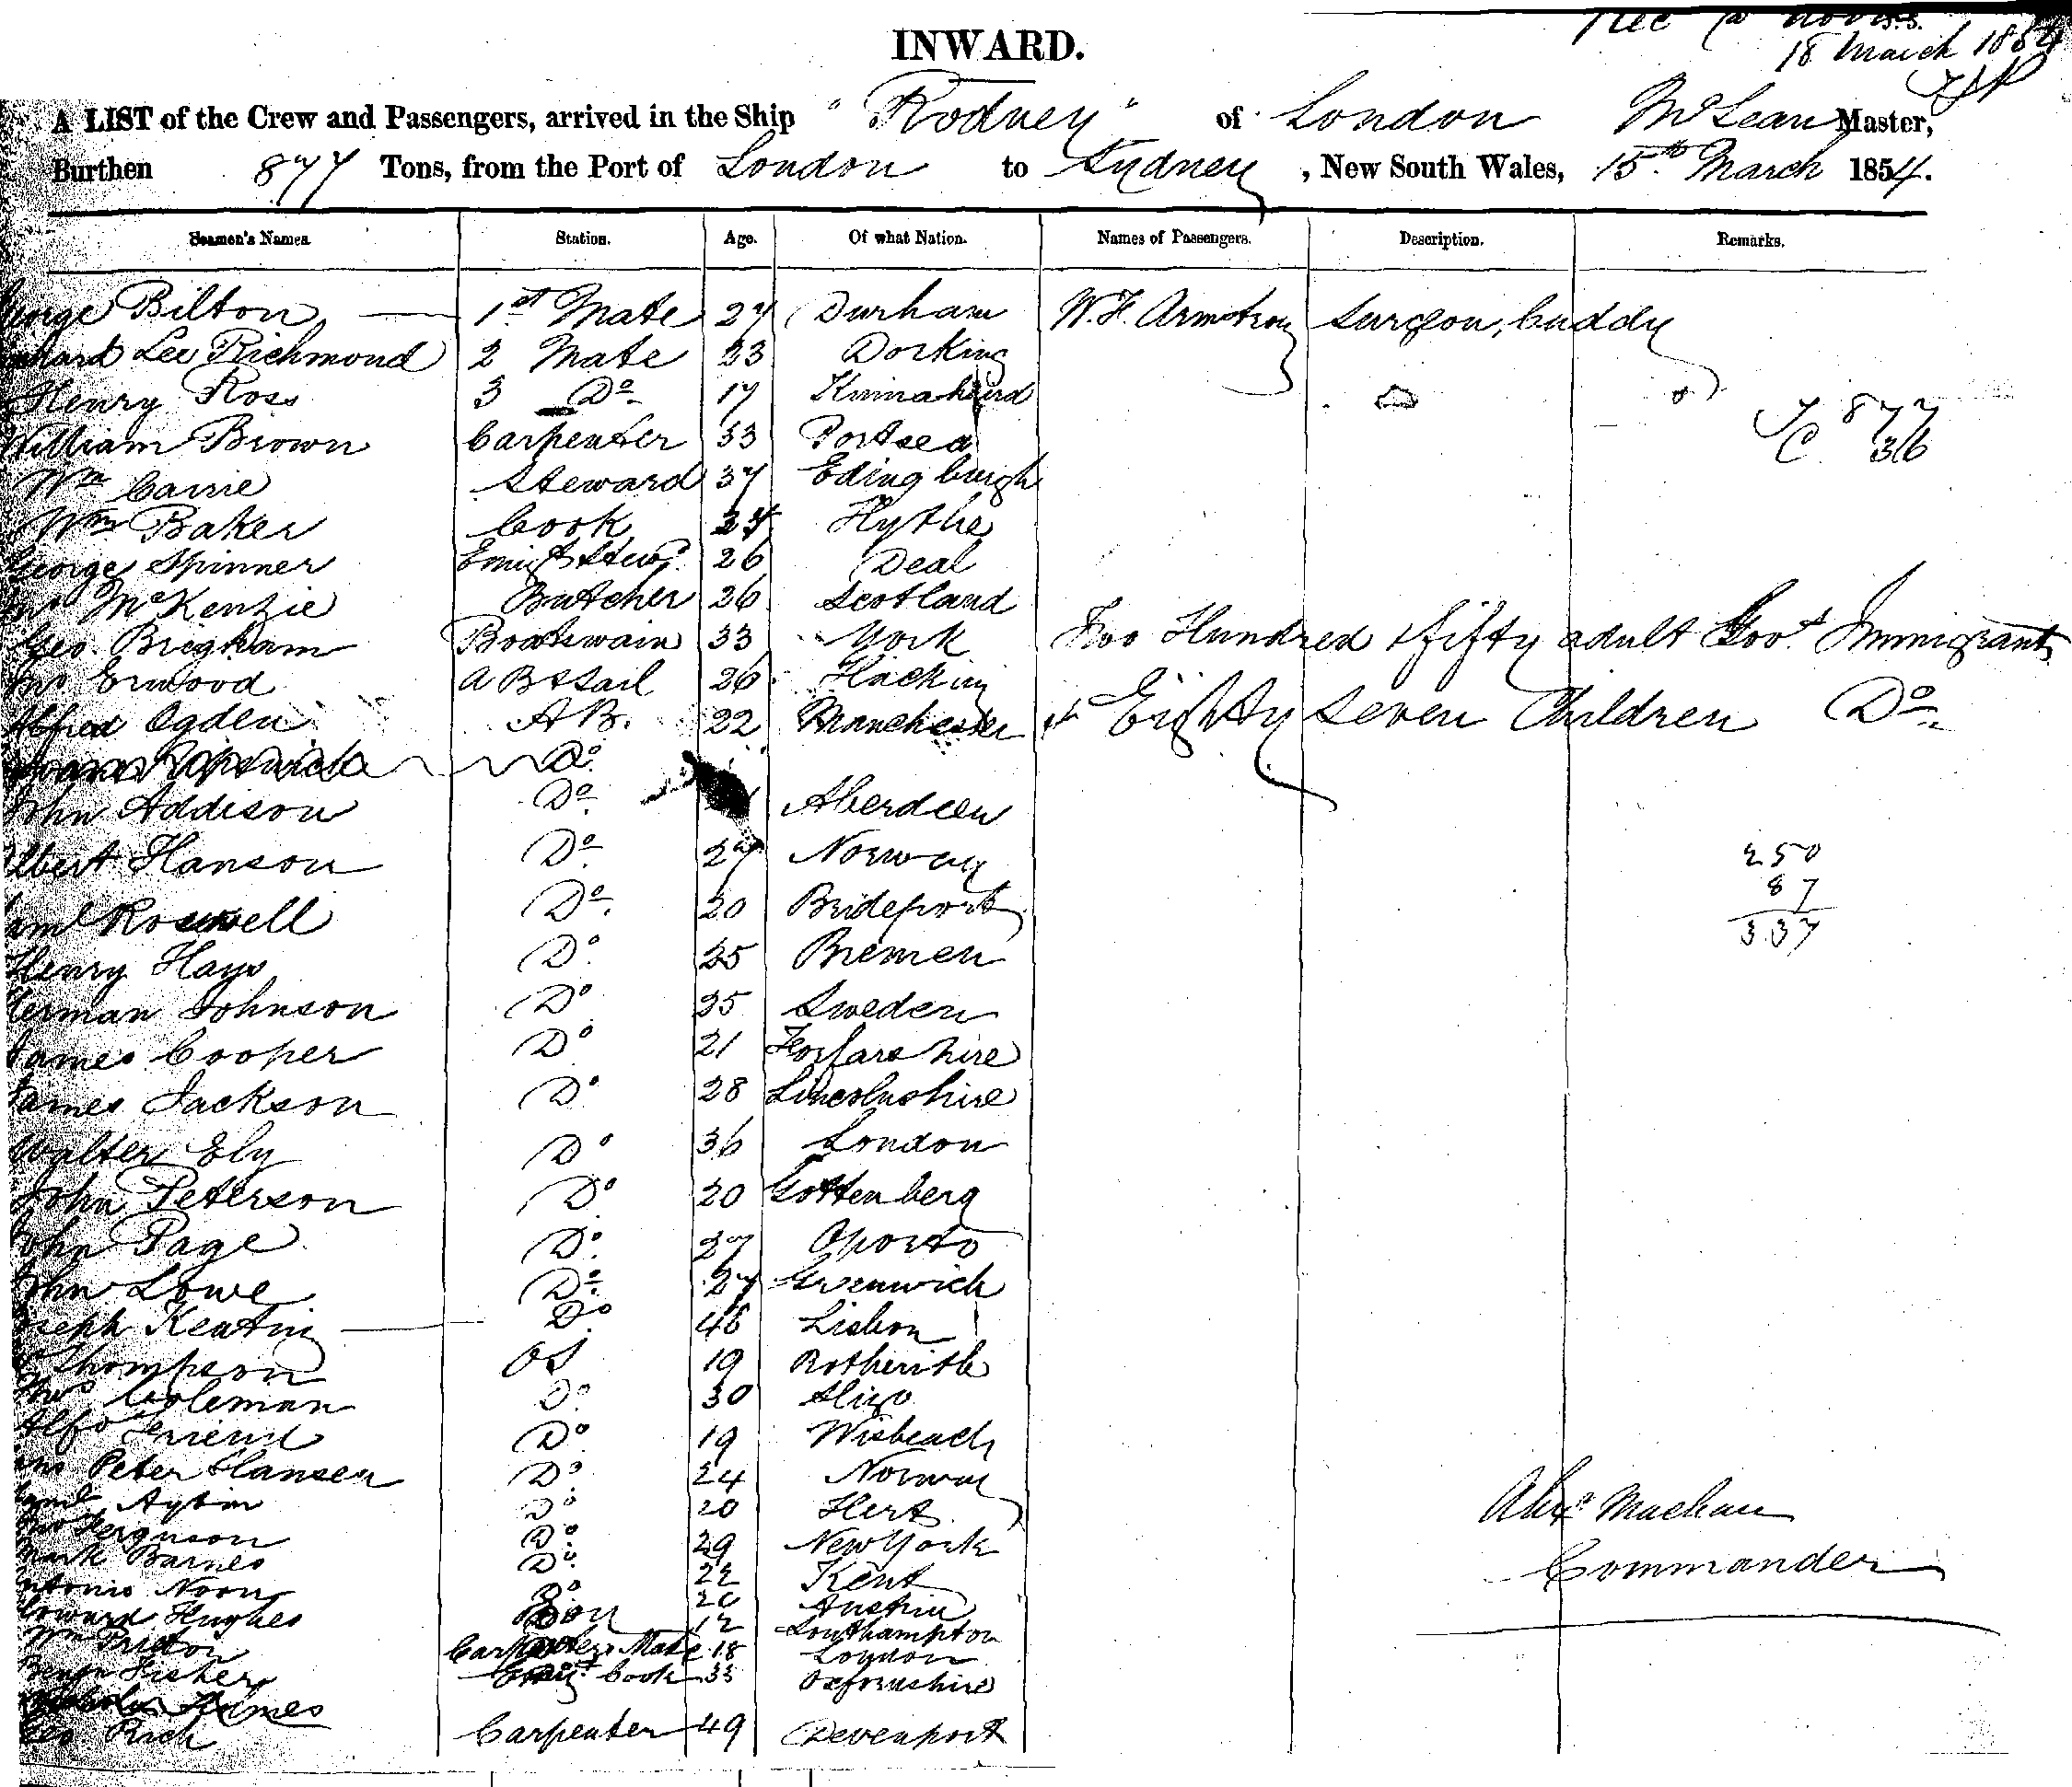 INWARD.
18 March 1854
A LIST of the Crew and Passengers, arrived in the Ship "Rodney" of London McLean Master,
Burthen 877 Tons, from the Port of London to Sydney, New South Wales, 15th March 1854.
Seamen's Names. Station. Age. Of what Nation. Names of Passengers. Description. Remarks.
George Bilton 1st Mate 27 Durham W. F. Armstrong Surgeon, Cuddy
Lee Richmond 2 Mate 23 Dorking
Henry Ross 3 Do 17
T 877
William Brown Carpenter 33 Portsea
C 36
Wm Carrie Steward 37 Edingburgh
Wm Baker Cook Hythe
George Spinner 26 Deal
Jno McKenzie Butcher 26 Scotland
Geo. Brigham Boatswain 33 York Two Hundred & fifty adult Govt Immigrants
Jno Erwood A B & Sail 26
Alfred Ogden A B. 22 Manchester & Eighty Seven Children Do
Do
John Addison Do Aberdeen
Albert Hanson Do 27 Norway 250
87
Saml Roswell Do 20 Brideport
337
Henry Hays Do 25 Bremen
Herman Johnson Do 25 Sweden
James Cooper Do 21 Forfarshire
James Jackson Do 28 Lincolnshire
Walter Ely Do 36 London
John Peterson Do 20 Gottenberg
John Page Do 27 Oporto
John Lowe Do 27 Greenwich
Joseph Keating Do 46 Lisbon
Thompson OS 19 Rotherithe
Thos Coleman Do 30 Sligo
Alfd Friend Do 19 Wisbeach
Jno Peter Hansen Do 24 Norway
Saml Do 20 Hert
Alexr Maclean
Jno Ferguson Do 29 New York
Mark Barnes Do 22 Kent
Commander
Antonio Noon Do Austria
Edward Hughes Boy 12 Southampton
Wm Carpenters Mate 18 London
Benjn Fisher Emigt Cook 33 Oxfordshire
Geo Rich Carpenter 49 Devenport